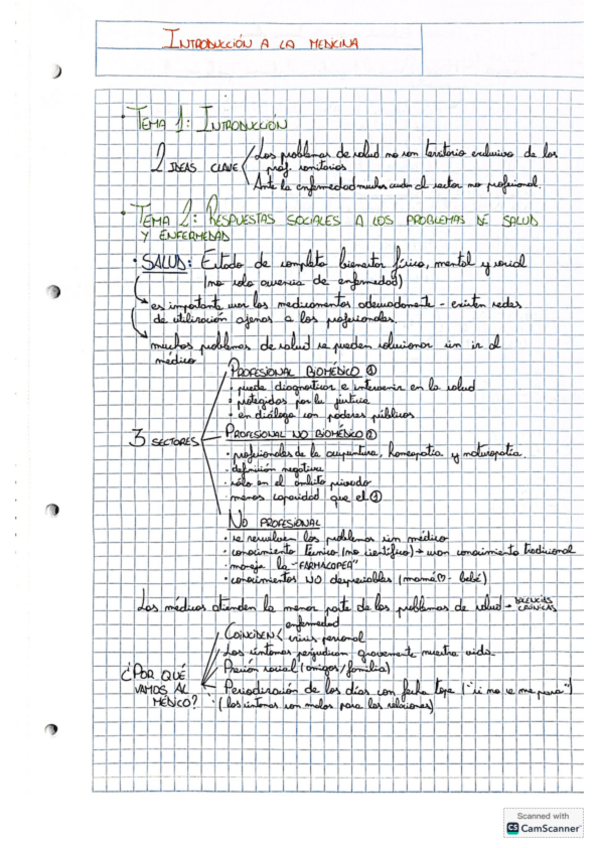 INTRODUCCIÓN A LA MEDICINA
· TEMA 1: INTRODUCCIÓN
2 IDEAS CLAVE
Los problemas de salud no son territorio exclusivo de los
prof. sanitarios
Ante la enfermedad muchos acuden al sector no profesional.
· TEMA 2: RESPUESTAS SOCIALES A LOS PROBLEMAS DE SALUD
Y ENFERMEDAD
· SALUD: Estado de completo bienestar físico, mental y social
(no solo ausencia de enfermedad)
es importante usar los medicamentos adecuadamente - existen redes
de utilización ajenas a los profesionales.
muchos problemas de salud se pueden solucionar sin ir al
médico
3 SECTORES
PROFESIONAL BIOMÉDICO ①
· puede diagnosticar e intervenir en la salud
· protegidos por la justicia
· en diálogo con poderes públicos
PROFESIONAL NO BIOMÉDICO ②
· profesionales de la acupuntura, homeopatía y naturopatía.
· definición negativa
· sólo en el ámbito privado
· menos capacidad que el ①
NO PROFESIONAL
· se resuelven los problemas sin médico
· conocimiento técnico (no científico) → usan conocimiento tradicional
· maneja la "FARMACOPEA"
· conocimientos NO despreciables (mamá♡- bebé)
Los médicos atienden la menor parte de los problemas de salud → DOLENCIAS CRÓNICAS
¿POR QUÉ
VAMOS AL
MÉDICO?
COINCIDEN < enfermedad
crisis personal
Los síntomas perjudican gravemente nuestra vida.
Presión social (amigos/familia)
Periodización de los días con fecha tope ("si no se me pasa")
(los síntomas son malos para las relaciones)
Scanned with
CS CamScanner